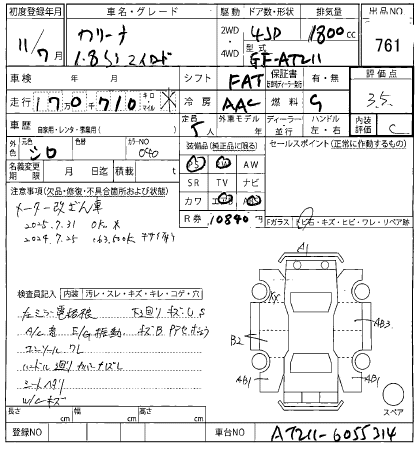 初度登録年月 車名・グレード 駆動 ドア数・形状 排気量 出品NO
11/7月 カリーナ 2WD 4SD 1800cc 761
1.8SI マイロード 4WD 型式 GF-AT211
車検 年 月 シフト FAT 保証書 有・無 評価点
走行 170千710 キロ・マイル 冷房 AAC 燃料 G 3.5
車歴 自家用・レンタ・事業用( ) 定員 5人 外車モデル年 ディーラー・並行 ハンドル 左・右 内装 C
外色 元色 シロ 色替 カラーNO 040 装備品(純正品に限る) セールスポイント(正常に動作するもの)
名義変更期限 月 日迄 積載 t PS PW AW
SR TV ナビ
注意事項(欠品・修復・不具合箇所および状態) カワ
メーター改ざん車 R券 10840円
2025.7.31 0km
2024.7.25 Fガラス トビ石・キズ・ヒビ・ワレ・リペア跡
A1
検査員記入 内装 汚レ・スレ・キズ・キレ・コゲ・穴
下廻り キズ U,S
A/C E/G振動 キズB
コンソールワレ
ハンドル廻りカバーキズ
シート
W/Cキズ
B2 AB3
AB1 AB1
長さ cm 幅 cm 高さ cm スペア
登録NO 車台NO AT211-6055314